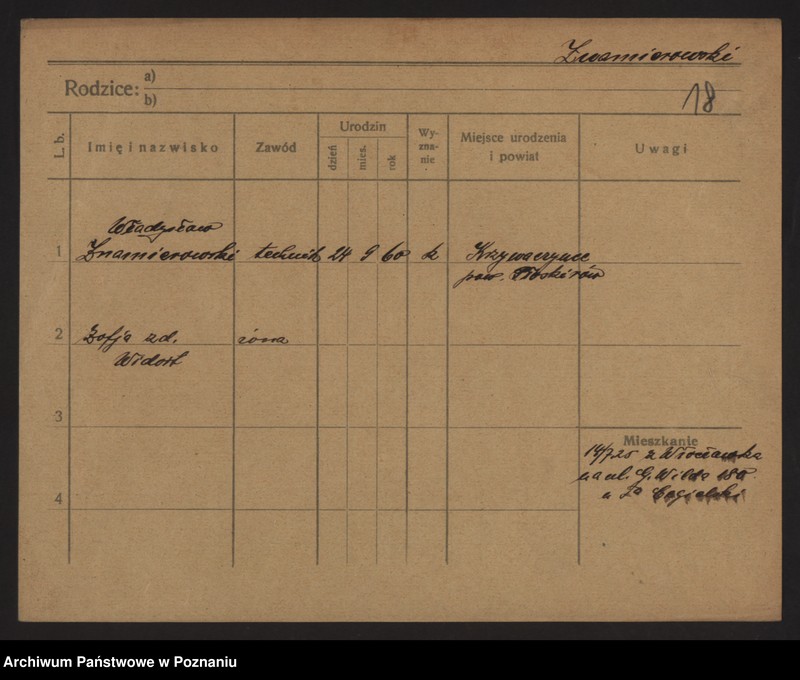 Znamierowski
Rodzice: a)
b)
18
L. b.
Imię i nazwisko
Zawód
Urodzin
dzień
mies.
rok
Wy-
zna-
nie
Miejsce urodzenia
i powiat
Uwagi
Władysław
1 Znamierowski technik 24 9 60 k Krzywaczynce
pow. Płoskirów
2 Zofja zd. żona
Widort
3
Mieszkanie
14/7 25 z Włocławka
na ul. G. Wilda 180
u Cegielski
4
Archiwum Państwowe w Poznaniu